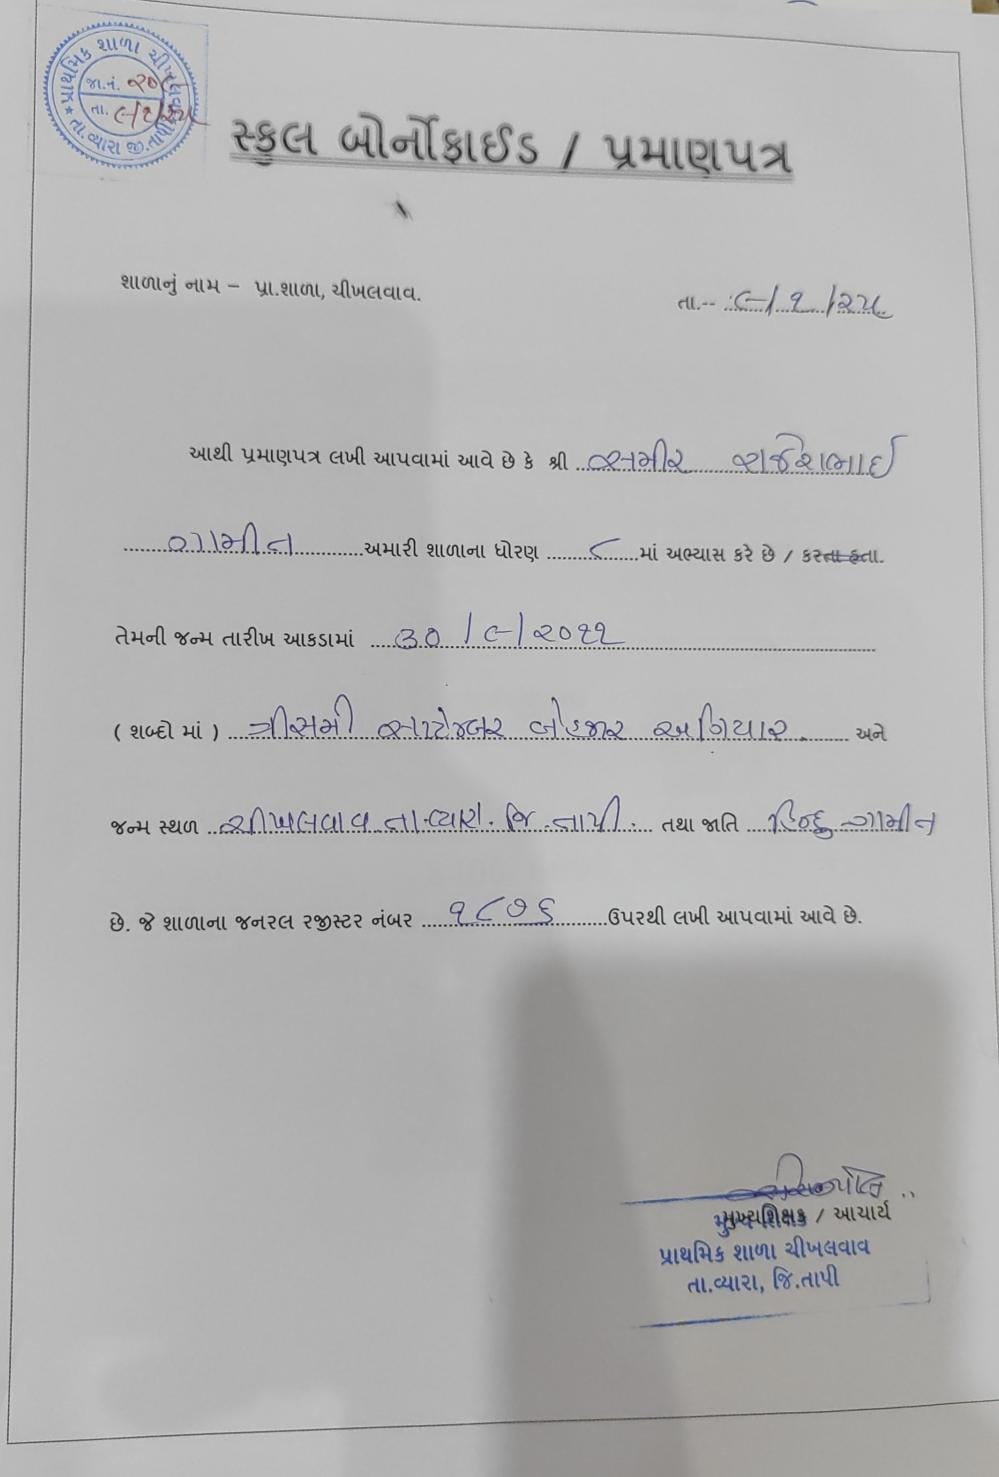 પ્રાથમિક શાળા ચીખલવાવ
જા.નં. ૨૦૮
તા. ૯/૧/૨૫
તા.વ્યારા જી.તાપી
સ્કુલ બોર્નોફાઈડ / પ્રમાણપત્ર
શાળાનું નામ – પ્રા.શાળા, ચીખલવાવ. તા.-- ૯/૧/૨૫
આથી પ્રમાણપત્ર લખી આપવામાં આવે છે કે શ્રી સમીર રાજેશભાઈ
ગામીત અમારી શાળાના ધોરણ ૮ માં અભ્યાસ કરે છે / કરતા હતા.
તેમની જન્મ તારીખ આકડામાં ૩૦/૯/૨૦૧૧
( શબ્દો માં ) ત્રીસમી સપ્ટેમ્બર બેહજાર અગિયાર અને
જન્મ સ્થળ ચીખલવાવ તા.વ્યારા. જિ.તાપી. તથા જાતિ હિન્દુ ગામીત
છે. જે શાળાના જનરલ રજીસ્ટર નંબર ૧૮૭૬ ઉપરથી લખી આપવામાં આવે છે.
મુખ્યશિક્ષક / આચાર્ય
પ્રાથમિક શાળા ચીખલવાવ
તા.વ્યારા, જિ.તાપી